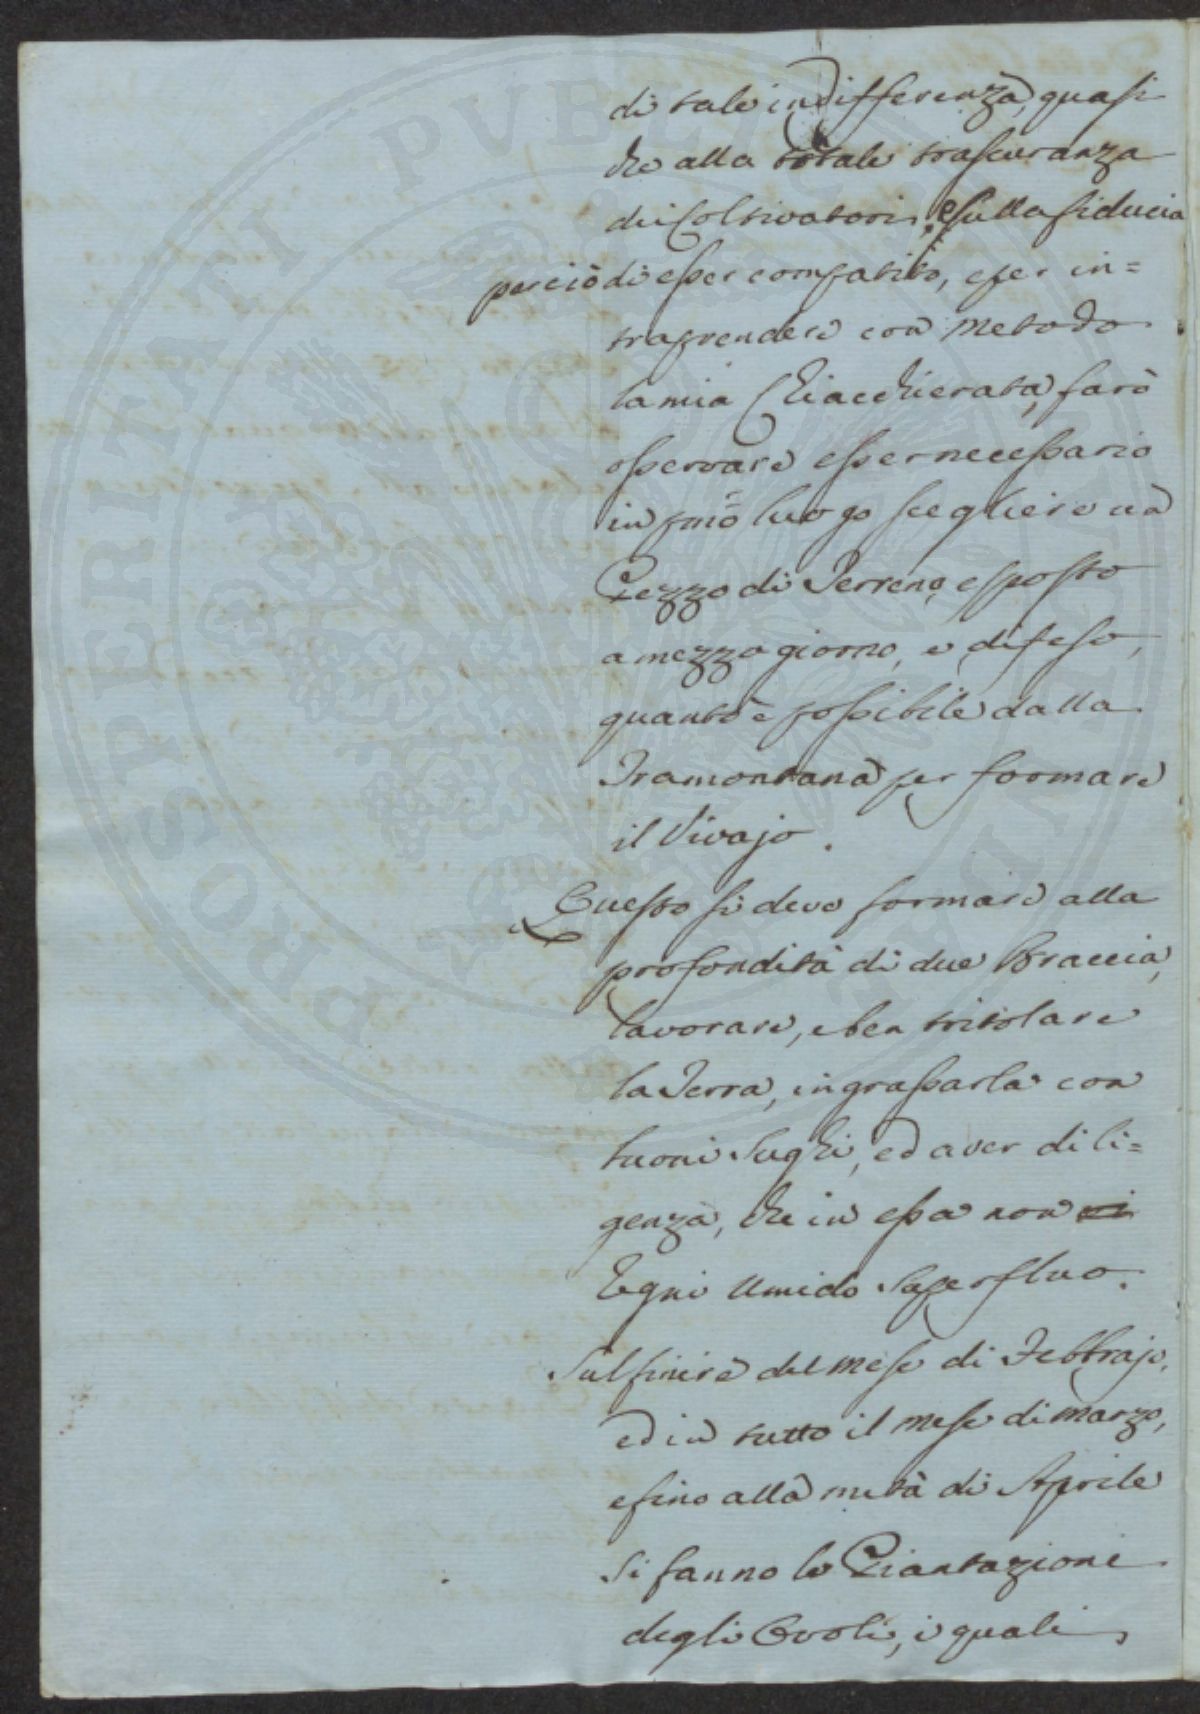 di tale indifferenza, quasi
che alla totale trascuranza
dei Coltivatori, e sulla fiducia
perciò di esser compatito, e per in=
traprendere con metodo
la mia Chiacchierata, farò
osservare esser necessario
in pmo luogo scegliere un
Pezzo di Terreno esposto
a mezzo giorno, e difeso,
quanto è possibile dalla
Tramontana per formare
il Vivajo.
Questo si deve formare alla
profondità di due Braccia,
lavorare, e ben tritolare
la Terra, ingrassarla con
buoni sughi, ed aver dili=
genza, che in essa non vi
regni umido superfluo.
Sul finire del mese di Febbrajo,
ed in tutto il mese di marzo,
e fino alla metà di Aprile
si fanno le Piantazioni
degli Ovoli, i quali
PROSPERITATI PUBLICAE